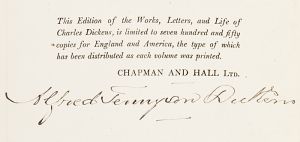 This Edition of the Works, Letters, and Life of
Charles Dickens, is limited to seven hundred and fifty
copies for England and America, the type of which
has been distributed as each volume was printed.
CHAPMAN AND HALL LTD.
Alfred Tennyson Dickens